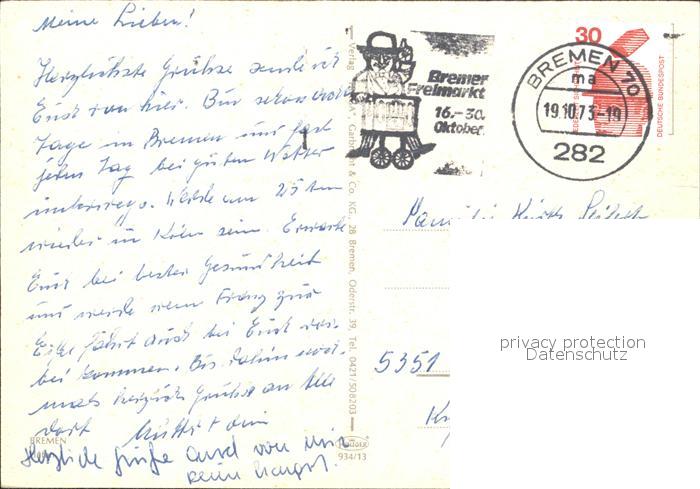 Meine Lieben!
Herzlichste Grüsse sende ich
Euch von hier. Bin schon
Tage in Bremen und fast
jeden Tag bei guten Wetter
unterwegs. Werde am 25 ten
wieder in Köln sein. Erwarte
Euch bei bester Gesundheit
und werde wenn Franz zur
fährt auch bei Euch
bei kommen. Bis dahin
mals herzliche Grüsse an Alle
dort Mutter
Herzliche Grüße auch von mir
BREMEN
Bremer
Freimarkt
16.-30.
Oktober
BREMEN 70
ma
19.10.73-19
282
30
DEUTSCHE BUNDESPOST
Verlag & Co. KG, 28 Bremen, Oderstr. 39, Tel. 0421/508203
934/13
Familie
5351
privacy protection
Datenschutz